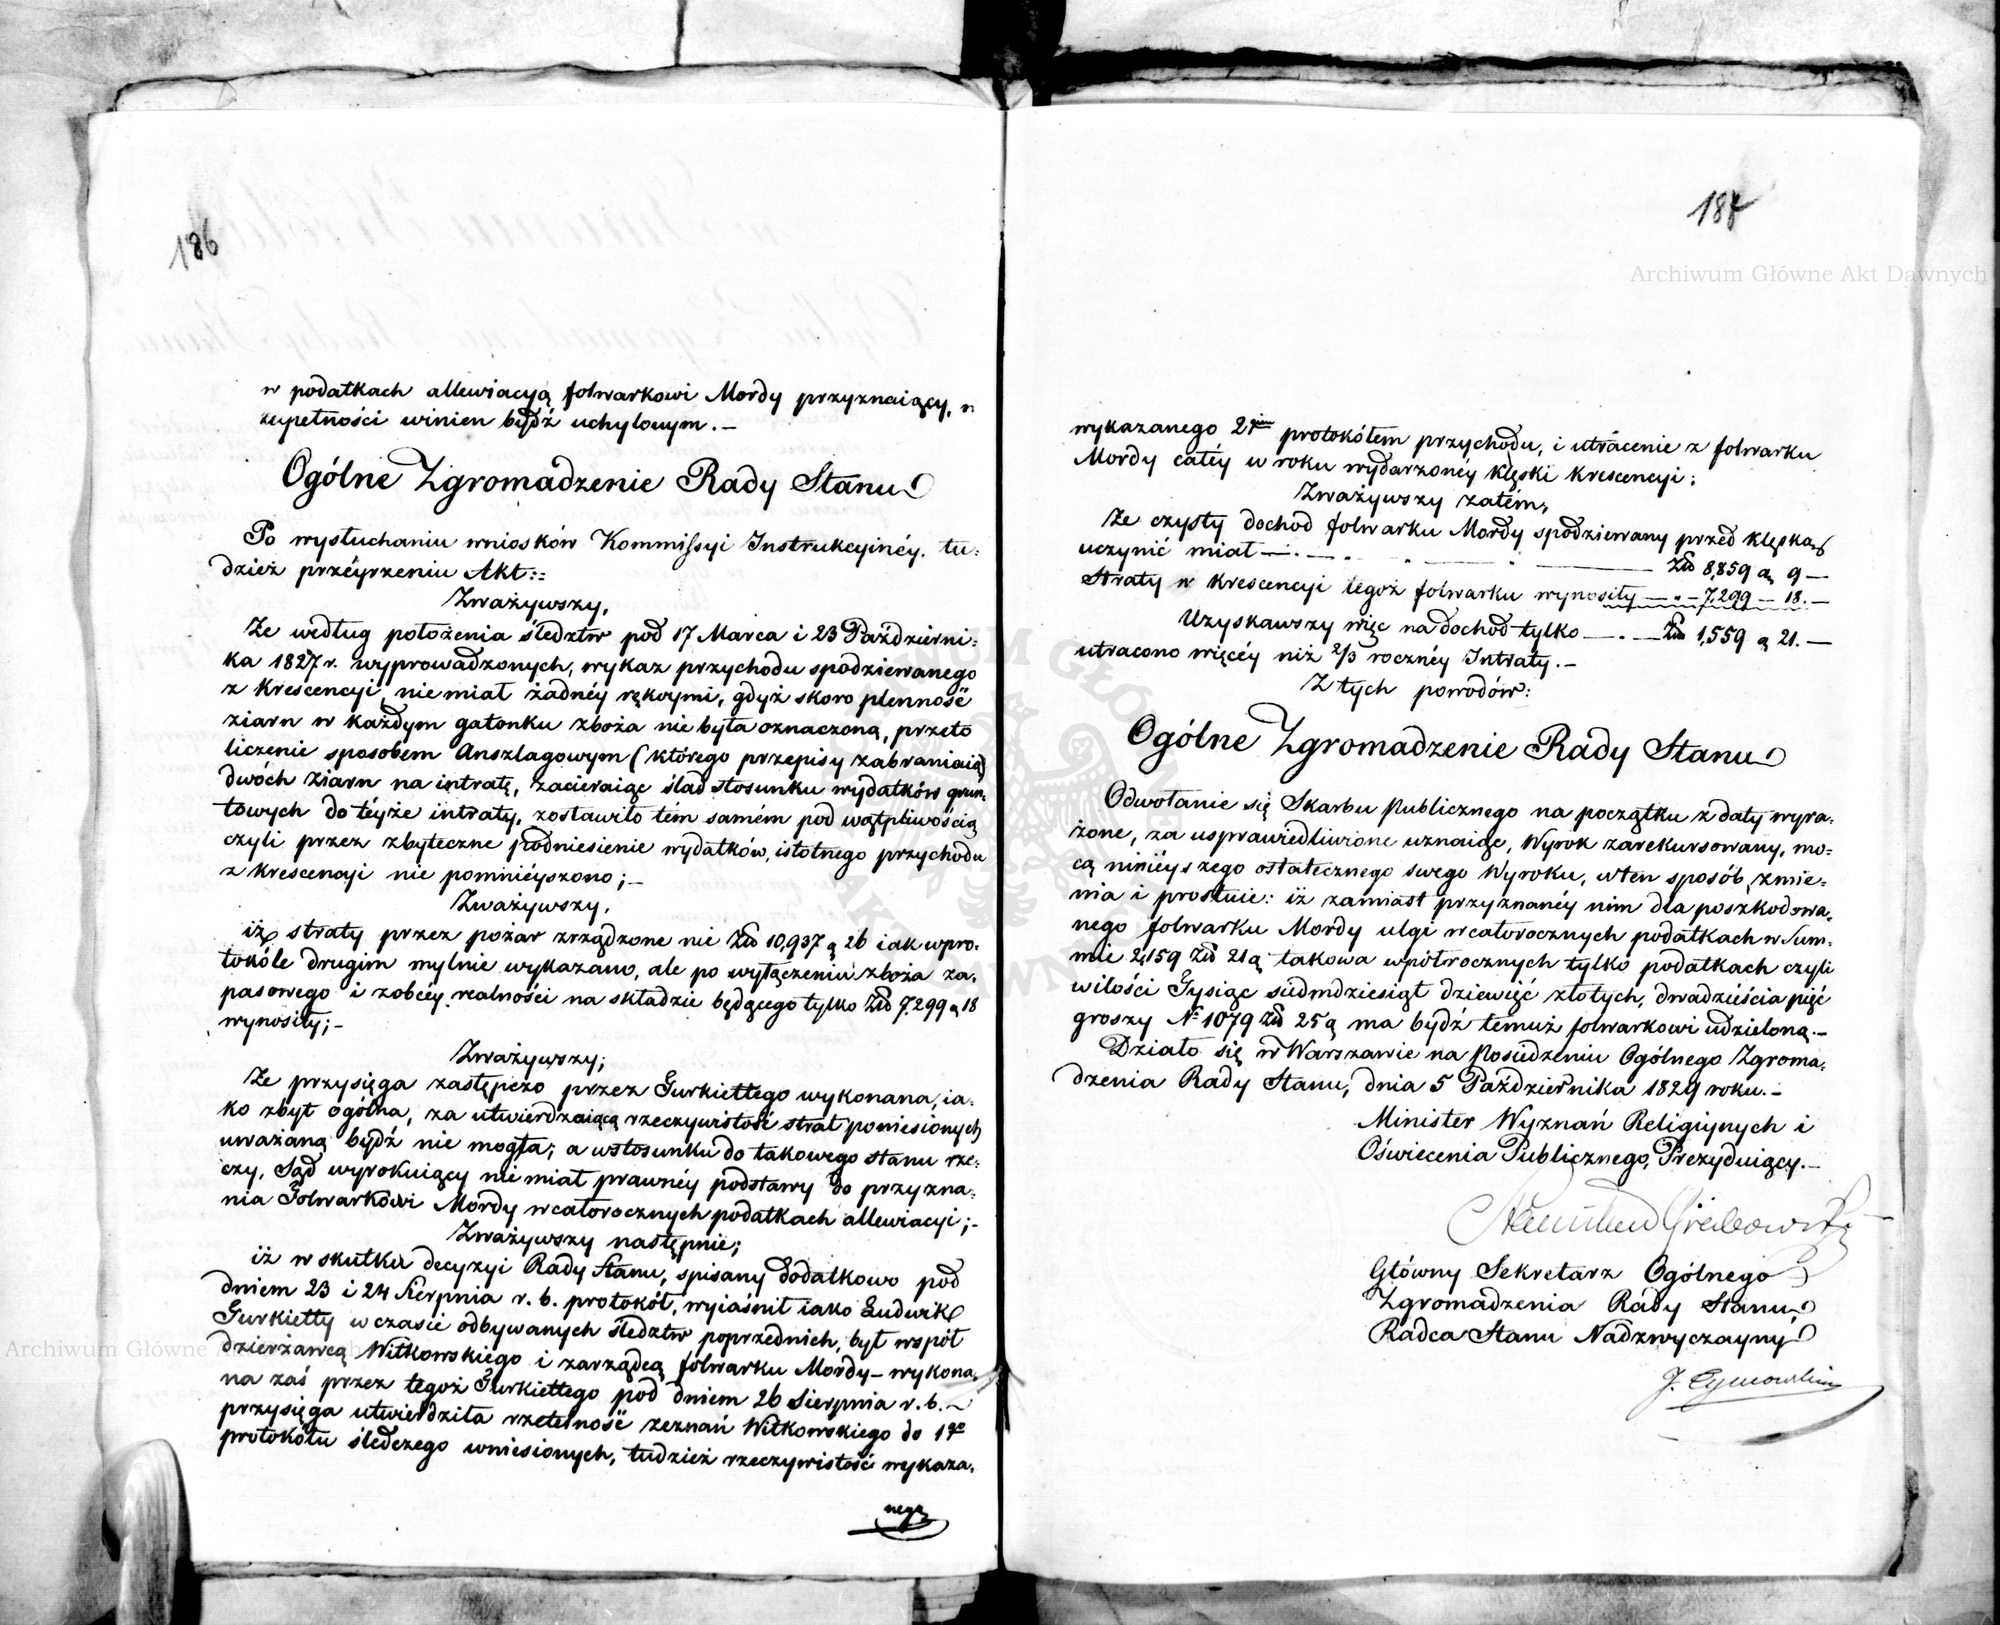 186
w podatkach allewiacyą folwarkowi Mordy przyznaiący, w
zupełności winien bydź uchylonym. –
Ogólne Zgromadzenie Rady Stanu
Po wysłuchaniu wniosków Kommissyi Instrukcyinéy, tu=
dzież przéyrzeniu Akt:=
Zważywszy,
Że według położenia śledztw pod 17 Marca i 23 Październi=
ka 1827 r. wyprowadzonych, wykaz przychodu spodziewanego
z krescencyi, nie miał żadnéy rękoymi, gdyż skoro plenność
ziarn w każdym gatonku zboża nie była oznaczoną, przeto
liczenie sposobem Anszlagowym (którego przepisy zabraniaią)
dwóch ziarn na intratę, zacieraiąc ślad stosunku wydatków grun=
towych do téyże intraty, zostawiło tém samém pod wątpliwością
czyli przez zbyteczne podniesienie wydatków, istotnego przychodu
z krescencyi nie pomniéyszono; –
Zważywszy,
iż straty przez pożar zrządzone nie Złp 10,937 g 26 iak w pro=
tokóle drugim mylnie wykazano, ale po wyłączeniu zboża za=
pasowego i zobcéy realności na składzie będącego tylko Złp 7.299 g 18
wynosiły; –
Zważywszy;
Że przysięga zastępczo przez Gurkiettego wykonana, ia=
ko zbyt ogólna, za utwierdzaiącą rzeczywistość strat poniesionych
uważaną bydź nie mogła; a wstosunku do takowego stanu rze=
czy, Sąd wyrokuiący nie miał prawnéy podstawy do przyzna=
nia Folwarkowi Mordy w całorocznych podatkach allewiacyi; –
Zważywszy następnie;
iż w skutku decyzyi Rady Stanu, spisany dodatkowo pod
dniem 23 i 24 Sierpnia r. b. protokół, wyiaśnił iako Ludwik
Gurkietty w czasie odbywanych śledztw poprzednich, był wspól
dzierżawcą Witkowskiego i zarządcą folwarku Mordy – wykona=
na zaś przez tegoż Gurkiettego pod dniem 26 Sierpnia r. b. –
przysięga utwierdziła rzetelność zeznań Witkowskiego do 1go
protokółu śledczego wniesionych, tudzież rzeczywistość wykaza=
nego
187
Archiwum Główne Akt Dawnych
wykazanego 2gim protokółem przychodu, i utracenie z folwarku
Mordy całéy w roku wydarzonéy klęski krescencyi;
Zważywszy zatém,
Że czysty dochod folwarku Mordy spodziewany przed klęską
uczynić miał – . – Złp 8,859 g 9 –
Straty w krescencyi tegoż folwarku wynosiły – „ – 7,299 – 18. –
Uzyskawszy więc na dochod tylko – . – Złp 1,559 g 21. –
utracono więcéy niż 2/3 rocznéy Intraty. –
Z tych powodów:
Ogólne Zgromadzenie Rady Stanu
Odwołanie się Skarbu Publicznego na początku z daty wyra=
żone, za usprawiedliwione uznaiąc, Wyrok zarekursowany, mo=
cą ninieyszego ostatecznego swego Wyroku, w ten sposób zmie=
nia i prostuie: iż zamiast przyznanéy nim dla poszkodowa=
nego folwarku Mordy ulgi w całorocznych podatkach w Sum=
mie 2,159 Złp 21 g takowa w półrocznych tylko podatkach czyli
w ilości Tysiąc siedmdziesiąt dziewięć złotych, dwadzieścia pięć
groszy No 1079 Złp 25 g ma bydź temuż folwarkowi udzieloną. –
Działo się w Warszawie na Posiedzeniu Ogólnego Zgroma=
dzenia Rady Stanu, dnia 5 Października 1829 roku. –
Minister Wyznań Religiynych i
Oświecenia Publicznego, Prezyduiący. –
Stanisław Grabowski
Główny Sekretarz Ogólnego
Zgromadzenia Rady Stanu,
Radca Stanu Nadzwyczayny
Archiwum Główne Akt Dawnych